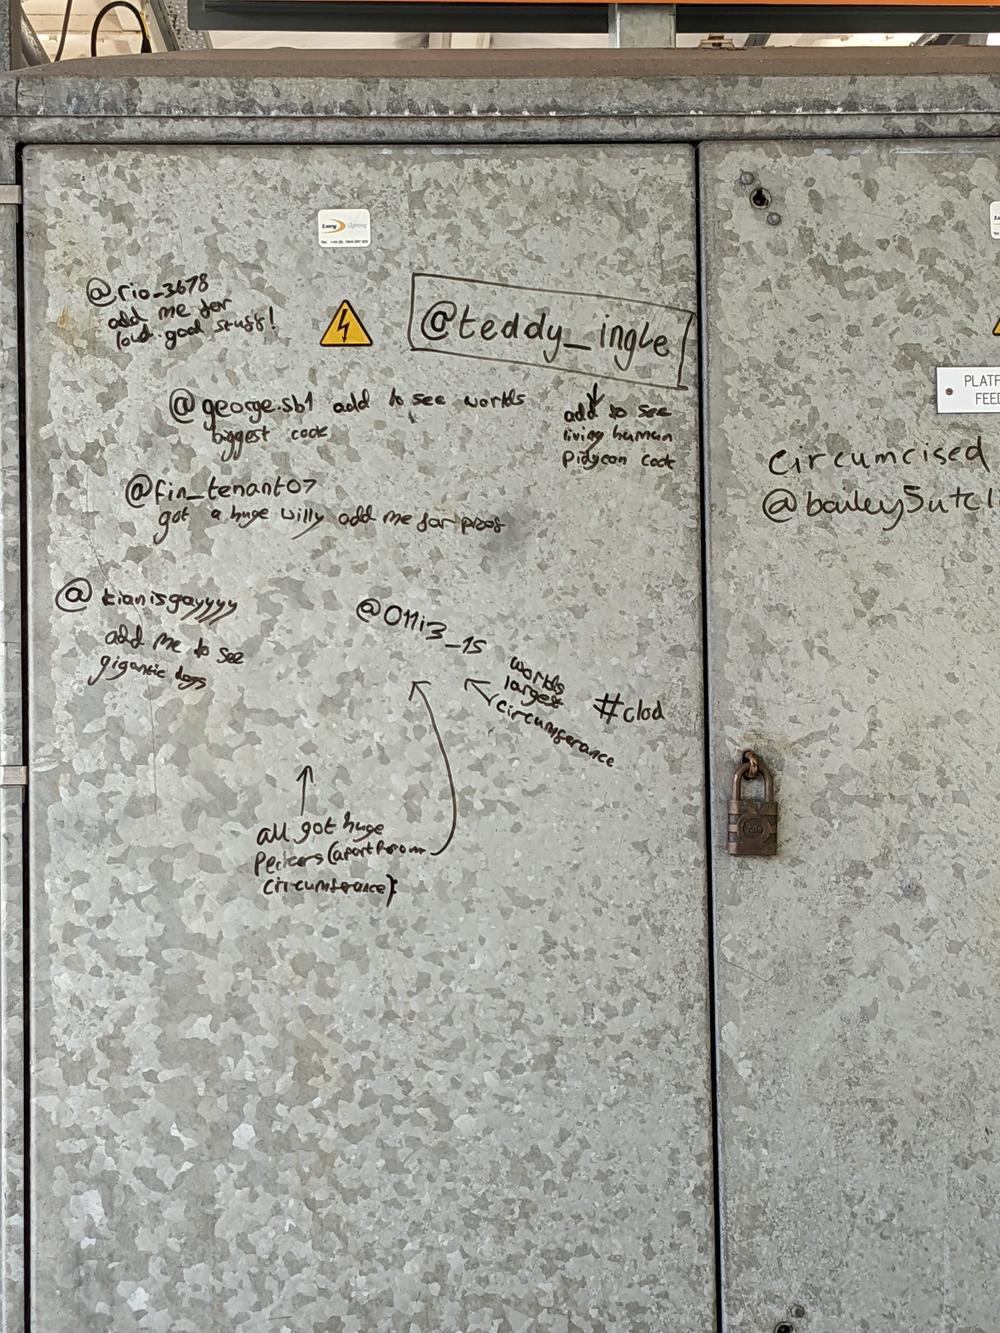 @rio_3678
add me for
loud good stuff!
@teddy_ingle
add to see
living human
Pidgeon cock
@george.sb1 add to see worlds
biggest cock
@fin_tenant07
got a huge willy add me for proof
@kianisgayyyy
add me to see
gigantic dogs
@O11i3_1s
worlds
largest
circumferance
#clod
all got huge
Peckers (apart from
circumferance)
circumcised
@bailey5utcl
PLATF
FEED
Lighting
Yale